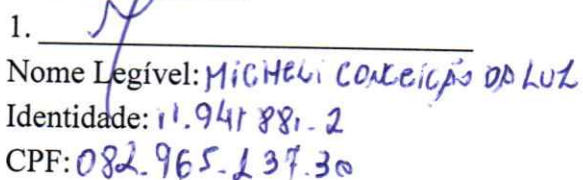 1.
Nome Legível: MiCHELi CONCEiÇÃO DA LUZ
Identidade: 11.941881-2
CPF: 082.965.137.30